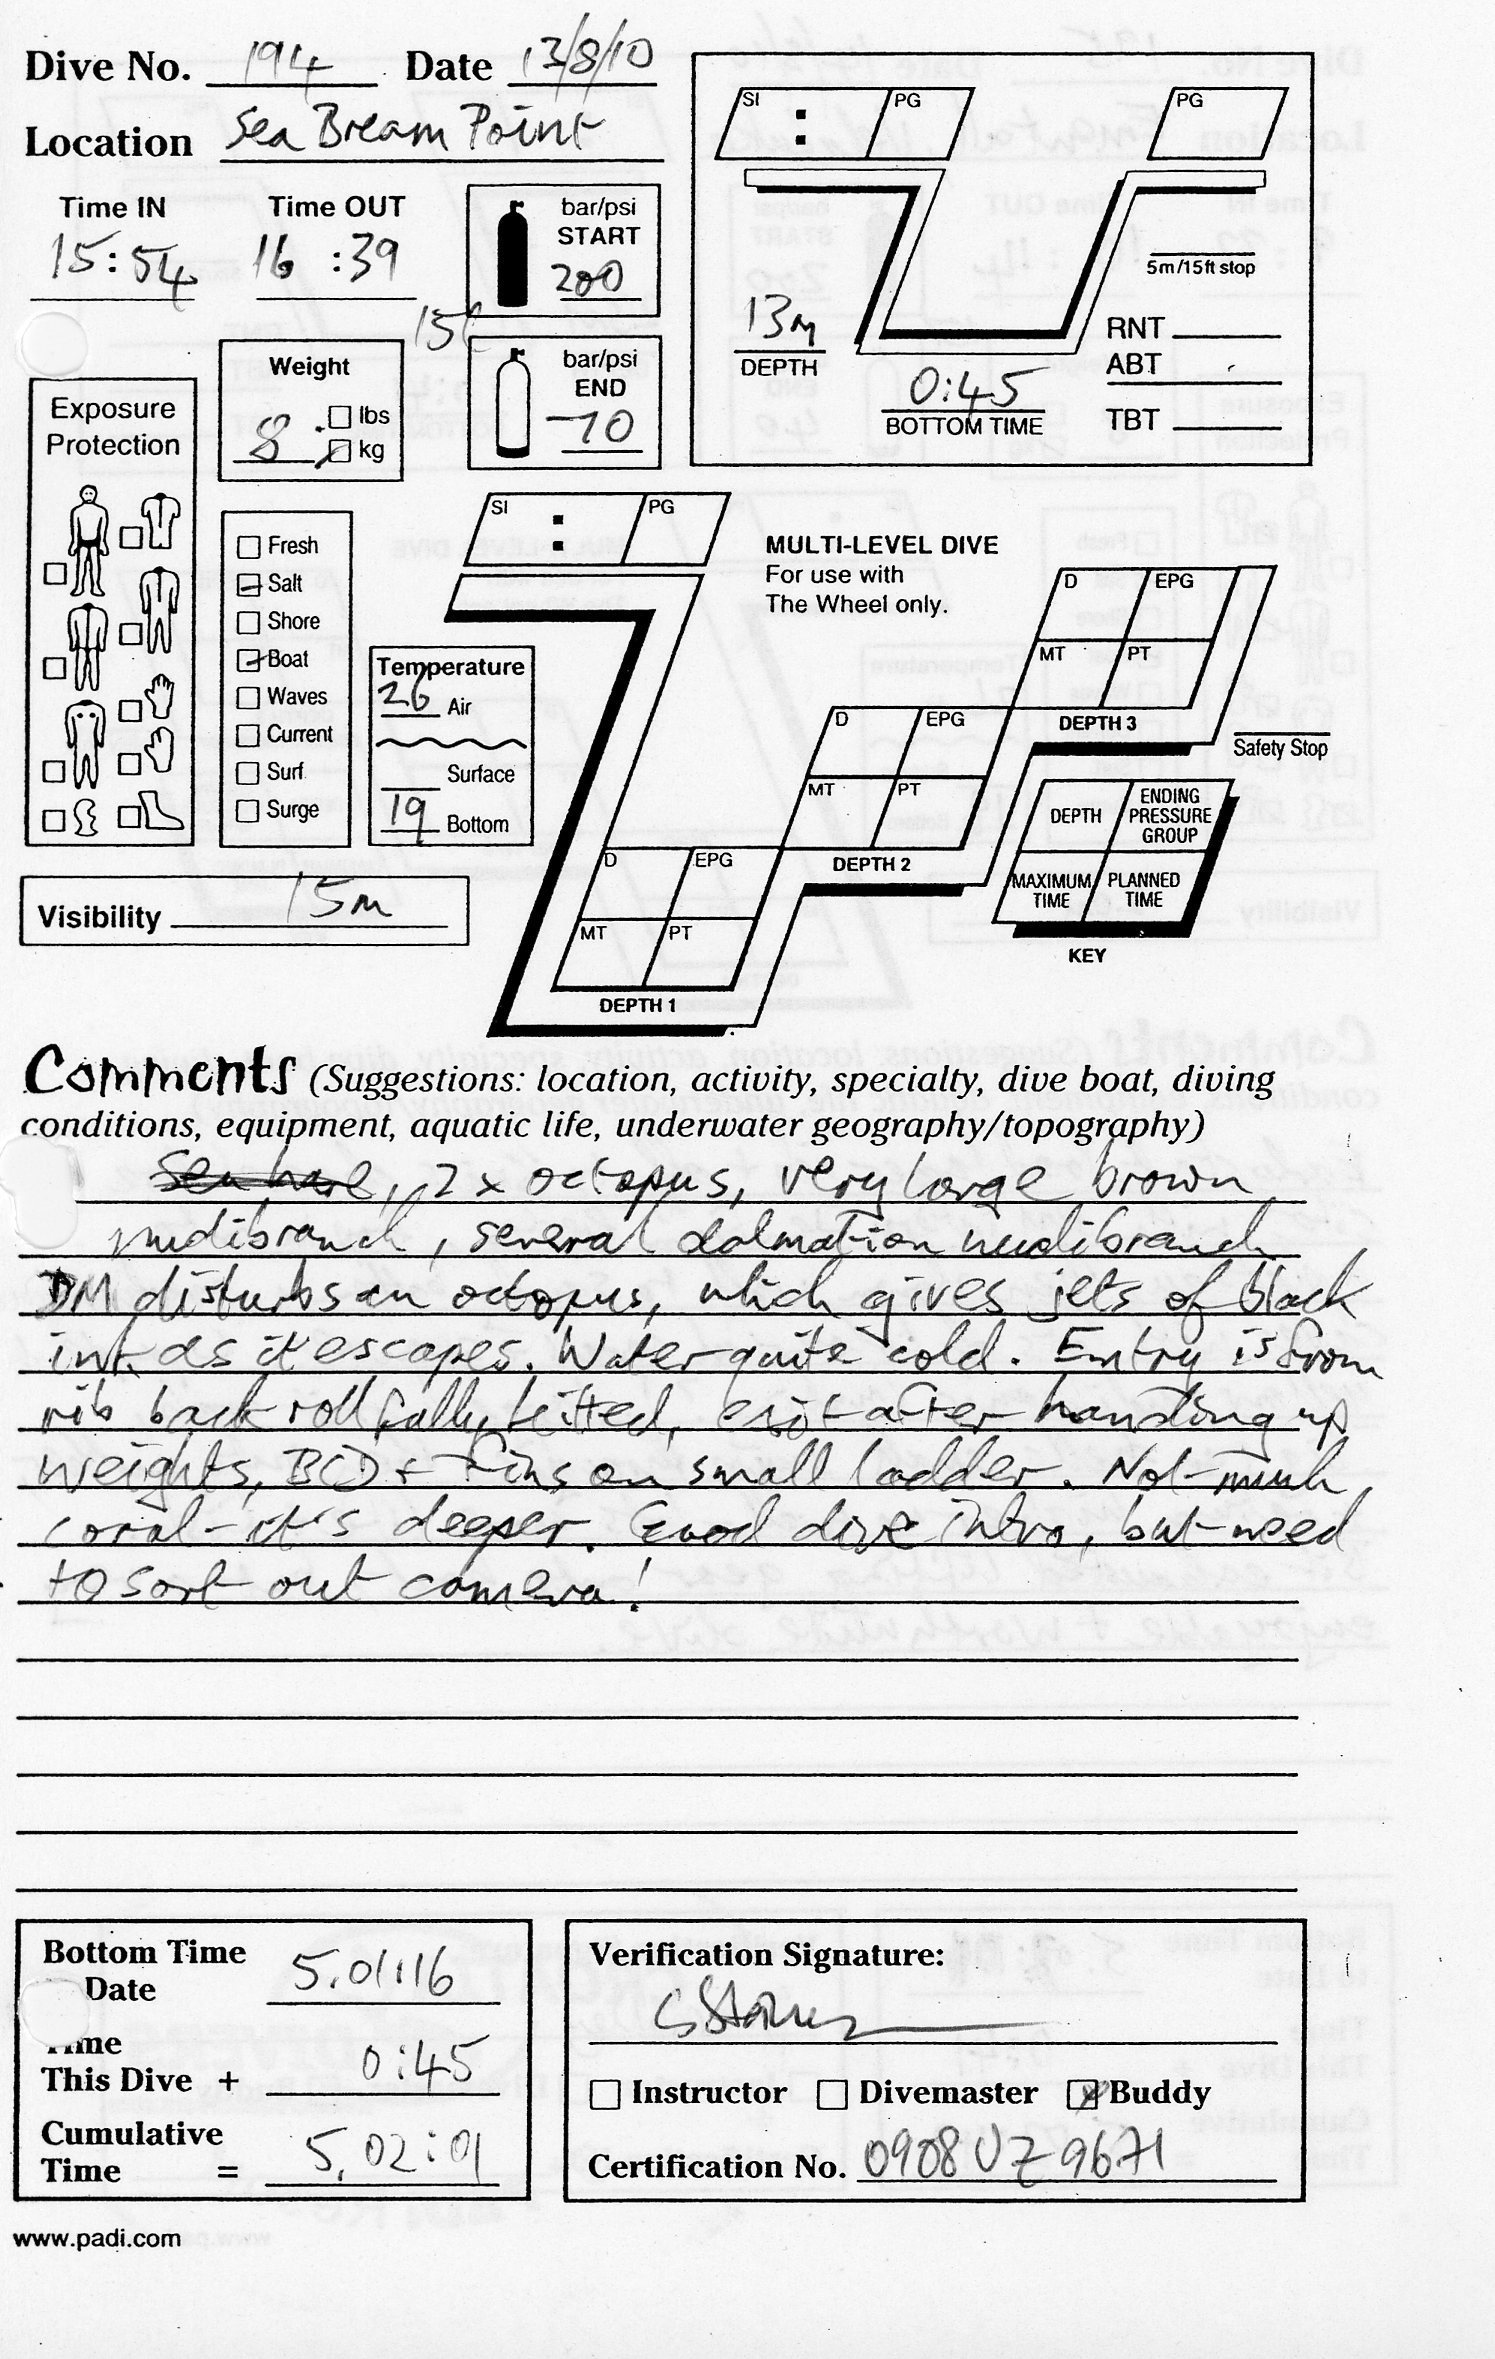 Dive No. 194 Date 13/8/10
Location Sea Bream Point
SI : PG
PG
Time IN Time OUT
15:54 16:39
bar/psi
START
200
5m/15ft stop
13m
DEPTH
0:45
BOTTOM TIME
RNT
ABT
TBT
15L
Weight
8 lbs
kg
bar/psi
END
70
Exposure
Protection
Fresh
Salt
Shore
Boat
Waves
Current
Surf
Surge
Temperature
26 Air
Surface
19 Bottom
Visibility 15m
SI : PG
MULTI-LEVEL DIVE
For use with
The Wheel only.
D EPG
MT PT
DEPTH 3
Safety Stop
D EPG
MT PT
DEPTH 2
D EPG
MT PT
DEPTH 1
DEPTH ENDING PRESSURE GROUP
MAXIMUM TIME PLANNED TIME
KEY
Comments (Suggestions: location, activity, specialty, dive boat, diving
conditions, equipment, aquatic life, underwater geography/topography)
Sea hare, 2 x octopus, very large brown
nudibranch, several dalmation nudibranch
DM disturbs an octopus, which gives jets of black
ink as it escapes. Water quite cold. Entry is from
rib back roll fully kitted, exit after handing up
weights, BCD + fins on small ladder. Not much
coral - it's deeper. Good dive intro, but need
to sort out camera!
Bottom Time
Date 5,01:16
Time
This Dive + 0:45
Cumulative
Time = 5,02:01
Verification Signature:
Instructor Divemaster Buddy
Certification No. 0908UZ9671
www.padi.com